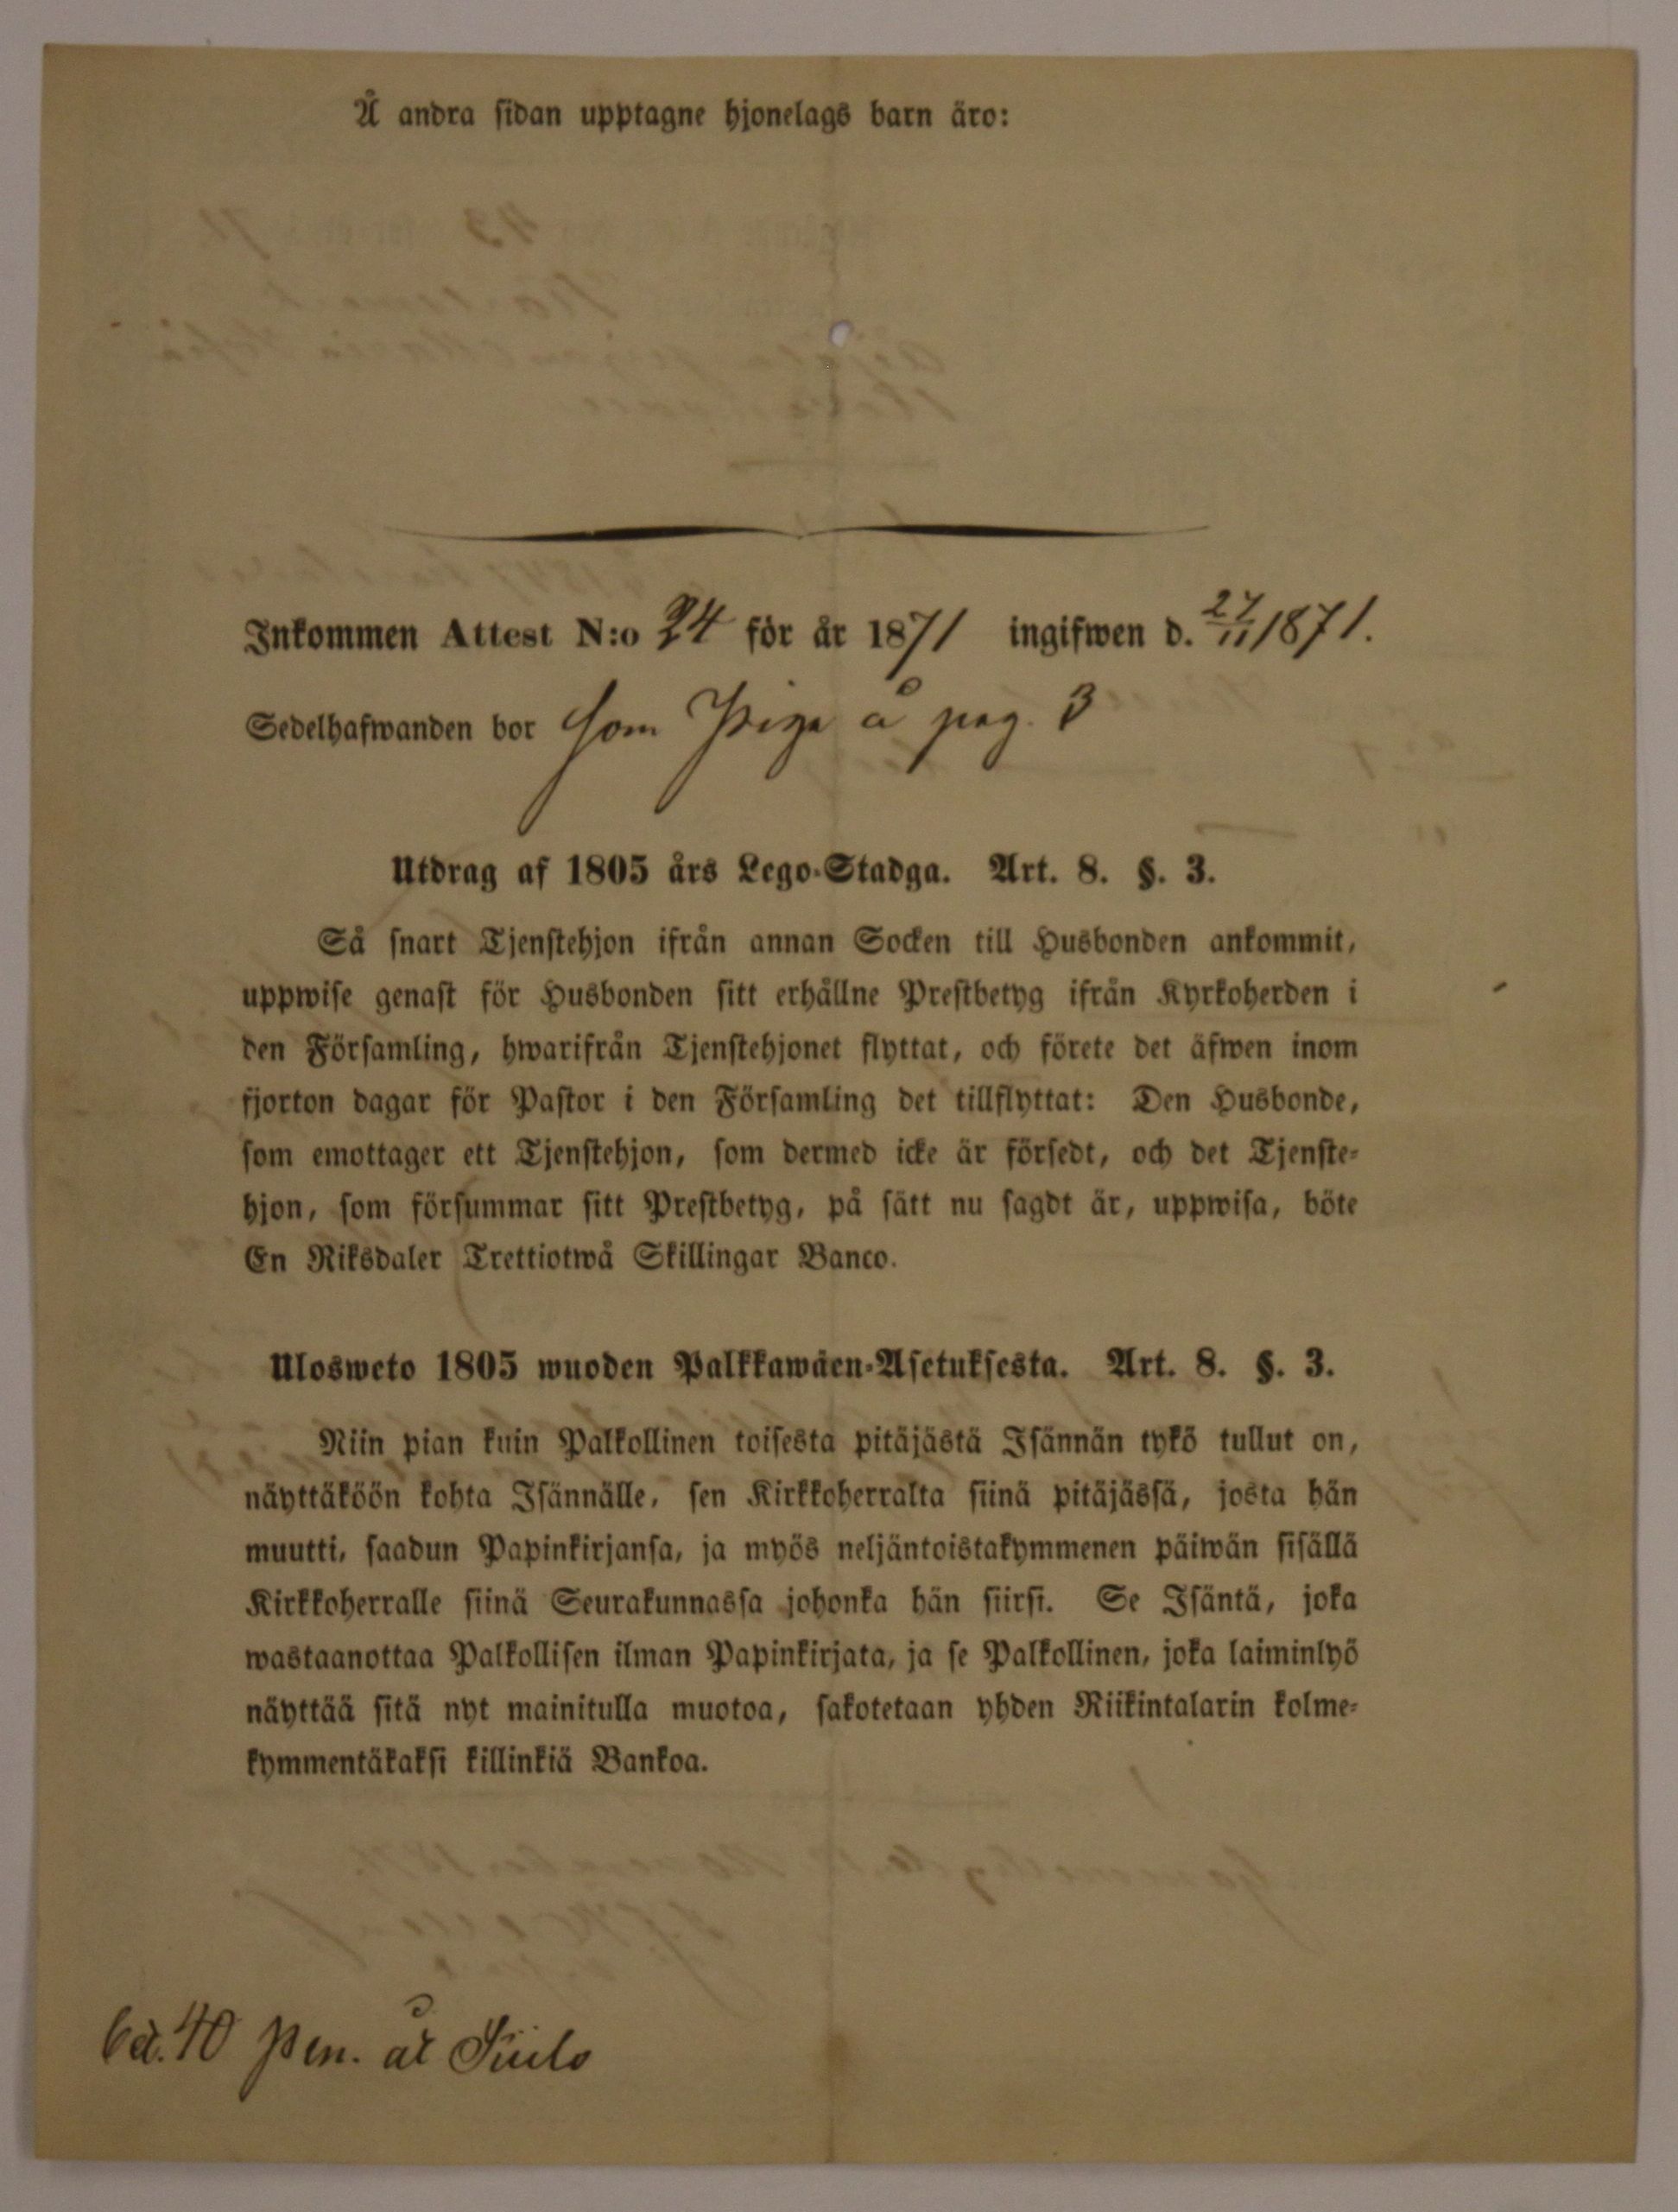 Å andra sidan upptagne hjonelags barn äro:
Inkommen Attest N:o 34 för år 1871 ingifwen d. 27/11 1871.
Sedelhafwanden bor som Piga å pag. 3
Utdrag af 1805 års Lego-Stadga. Art. 8. §. 3.
Så snart Tjenstehjon ifrån annan Socken till Husbonden ankommit,
uppwise genast för Husbonden sitt erhållne Prestbetyg ifrån Kyrkoherden i
den Församling, hwarifrån Tjenstehjonet flyttat, och förete det äfwen inom
fjorton dagar för Pastor i den Församling det tillflyttat: Den Husbonde,
som emottager ett Tjenstehjon, som dermed icke är försedt, och det Tjenste-
hjon, som försummar sitt Prestbetyg, på sätt nu sagdt är, uppwisa, böte
En Riksdaler Trettiotwå Skillingar Banco.
Ulosweto 1805 wuoden Palkkawäen-Asetuksesta. Art. 8. §. 3.
Niin pian kuin Palkollinen toisesta pitäjästä Isännän tykö tullut on,
näyttäköön kohta Isännälle, sen Kirkkoherralta siinä pitäjässä, josta hän
muutti, saadun Papinkirjansa, ja myös neljäntoistakymmenen päiwän sisällä
Kirkkoherralle siinä Seurakunnassa johonka hän siirsi. Se Isäntä, joka
wastaanottaa Palkollisen ilman Papinkirjata, ja se Palkollinen, joka laiminlyö
näyttää sitä nyt mainitulla muotoa, sakotetaan yhden Riikintalarin kolme-
kymmentäkaksi killinkiä Bankoa.
40 pen. åt